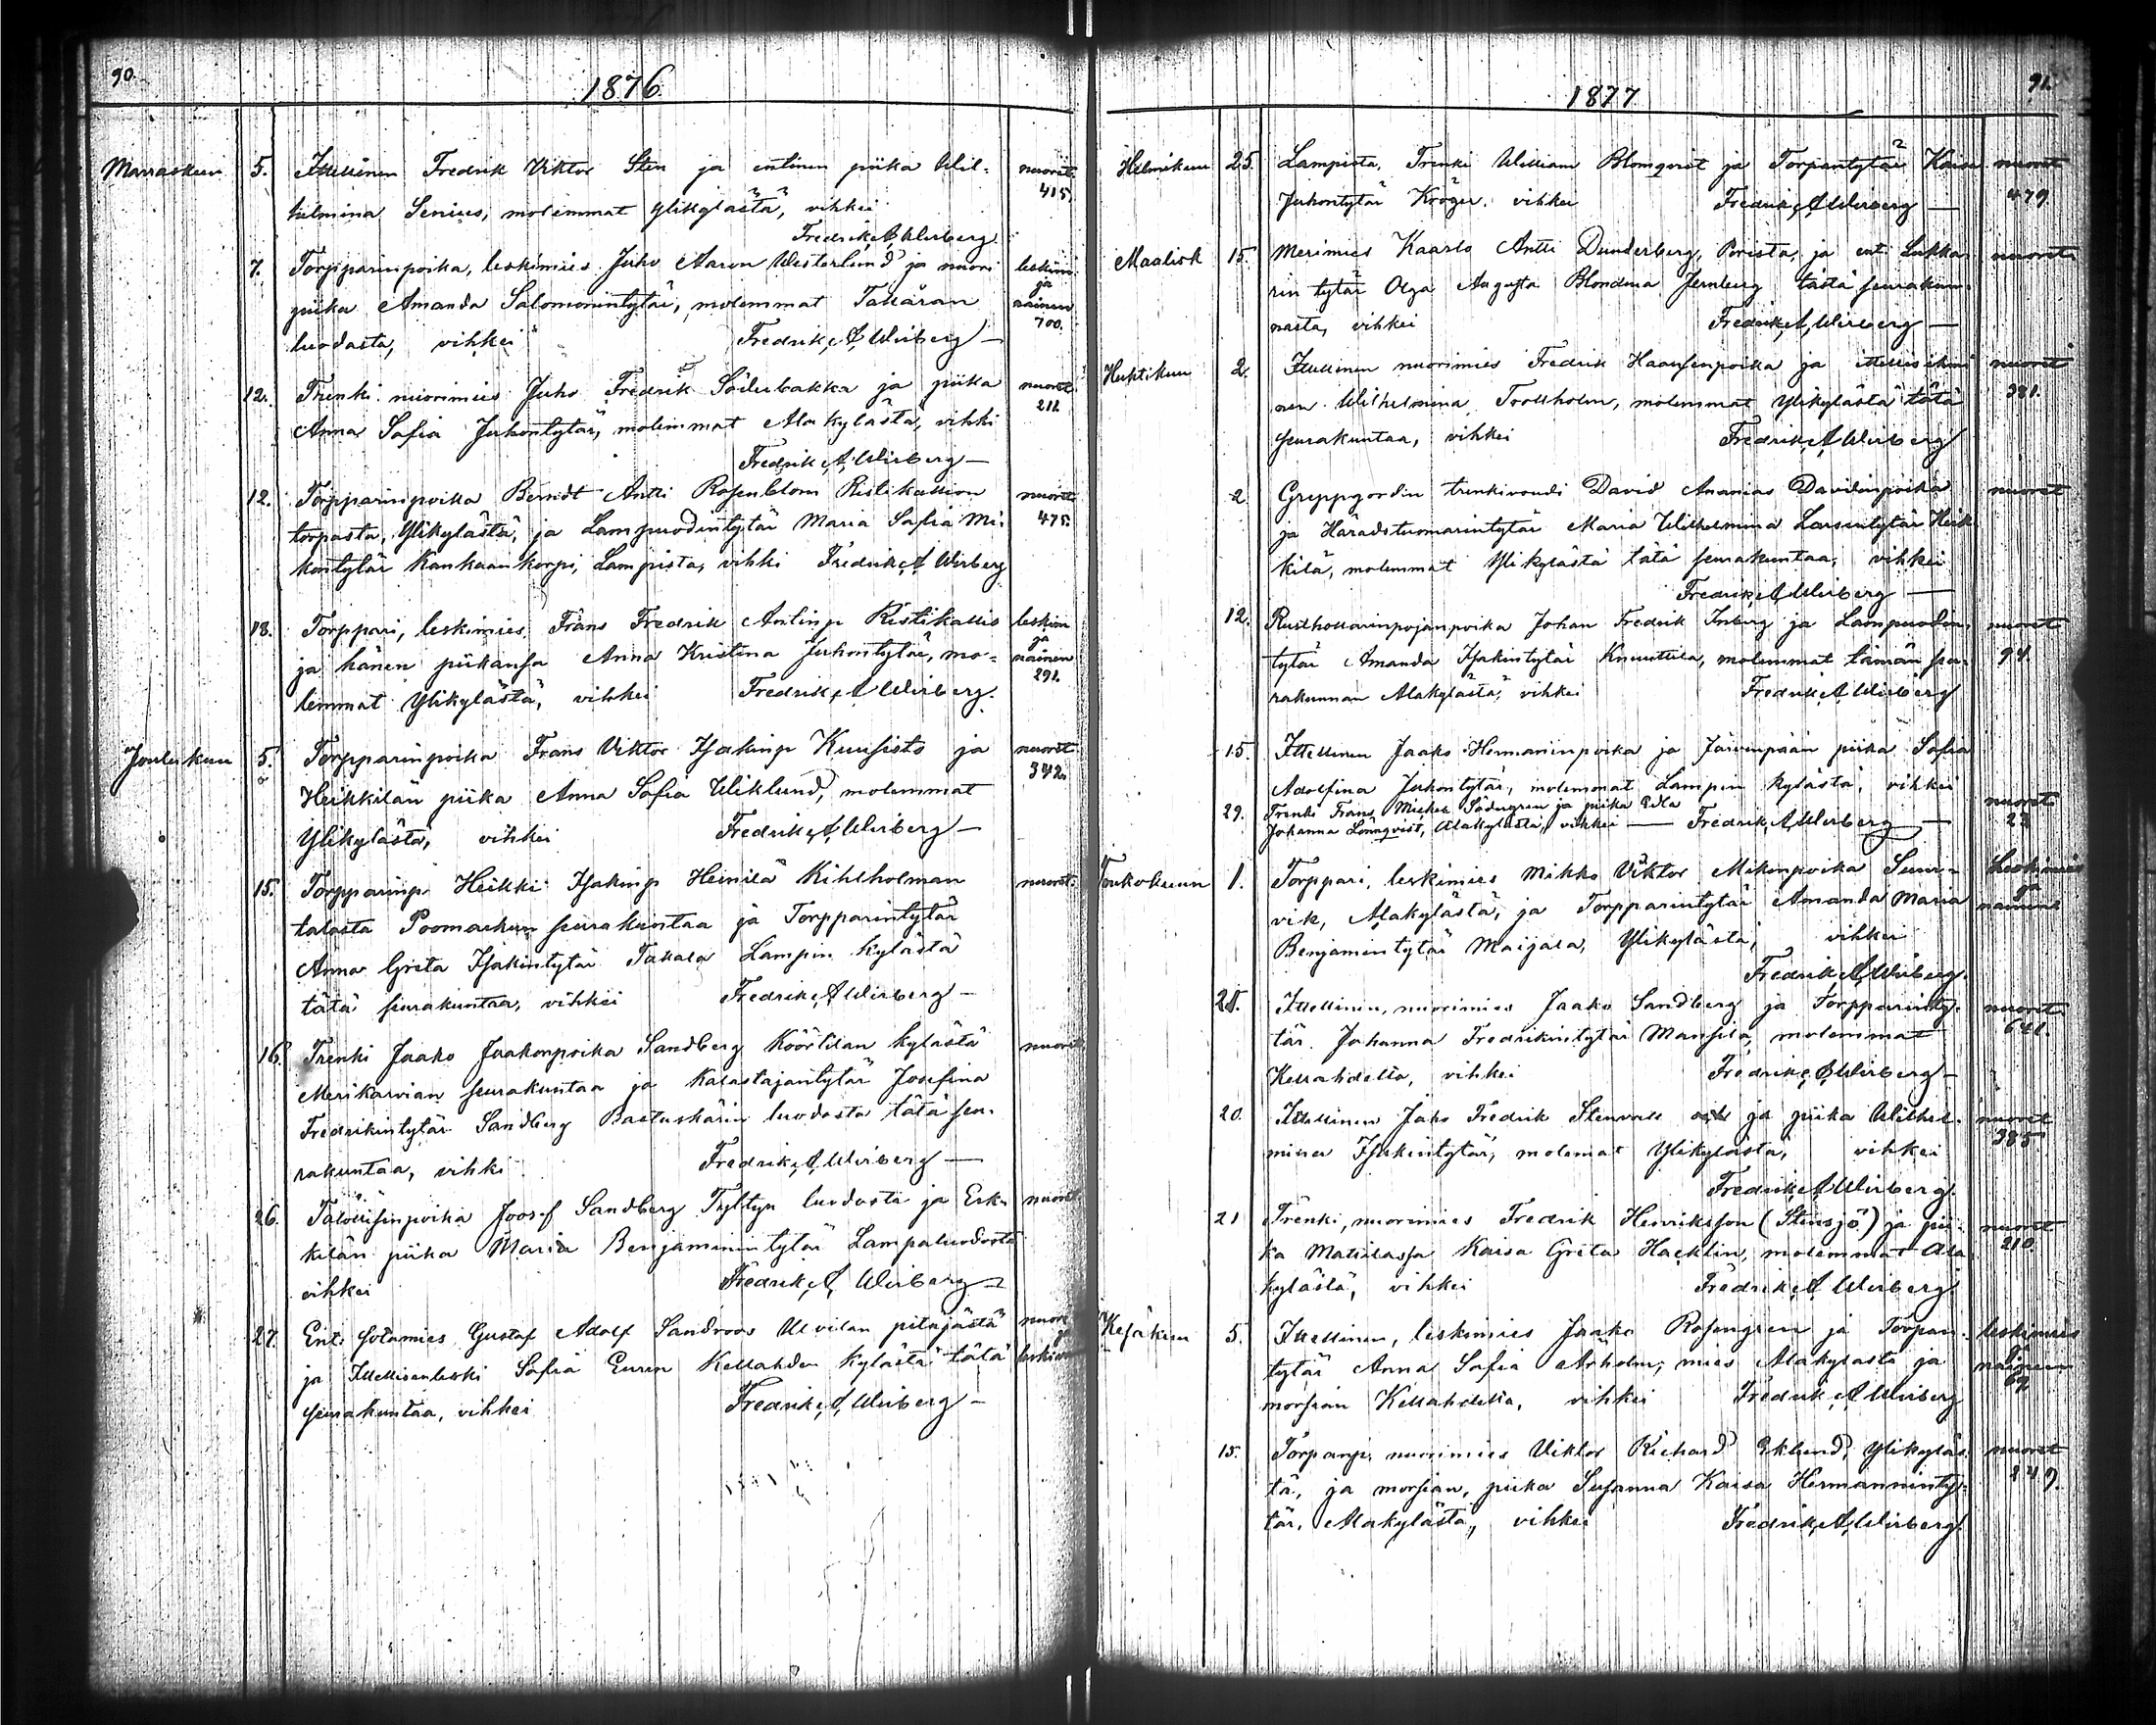 90.
1876
Marraskuun 5. Itsellinen Fredrik Viktor Sten ja entinen piika Wil- nuoret
helmina Senius, molemmat Ylikylästä, vihkei 415.
Fredrik A Wirberg.
7. Torpparinpoika, leskimies Juho Aaron Westerlund ja nuori leskim.
piika Amanda Salomonintytär, molemmat Takäran ja nainen
luodasta, vihkei Fredrik A Wirberg — 700.
12. Trenki nuorimies Juho Fredrik Söderbakka ja piika nuoret
Anna Sofia Juhontytär, molemmat Alakylästä, vihki 211.
Fredrik A Wirberg —
12. Torpparinpoika Berndt Antti Rosenblom Ristikallion nuoret
torpasta, Ylikylästä, ja Lampuodintytär Maria Sofia Mi- 475.
kontytär Kankaankorpi, Lampista, vihki Fredrik A Wirberg
18. Torppari, leskimies Frans Fredrik Antinp. Ristikallio leskim
ja hänen piikansa Anna Kristina Juhontytär, mo- ja nainen
lemmat Ylikylästä, vihkei Fredrik A Wirberg. 291.
Joulukuun 5. Torpparinpoika Frans Viktor Isakinp Kuusisto ja nuoret
Heikkilän piika Anna Sofia Wiklund, molemmat 342.
Ylikylästä, vihkei Fredrik A Wirberg —
15. Torpparinp. Heikki Isakinp Heinilä Kihlholman nuoret
talosta Poomarkun seurakuntaa ja Torpparintytär
Anna Greta Isakintytär Takala Lampin kylästä
tätä seurakuntaa, vihkei Fredrik A Wirberg —
16. Trenki Jaako Jaakonpoika Sandberg Köörtilän kylästä nuoret
Merikarvian seurakuntaa ja Kalastajantytär Josefina
Fredrikintytär Sandberg Bastuskärin luodosta tätä seu-
rakuntaa, vihki Fredrik A Wirberg —
26. Talollisenpoika Joosef Sandberg Tyltyn luodosta ja Erk- nuoret
kilän piika Maria Benjaminintytär Lampaluodosta
vihkei Fredrik A Wirberg —
27. Ent. sotamies Gustaf Adolf Sandroos Ulvilan pitäjästä nuori
ja Itsellisenleski Sofia Euren Kellahden kylästä tätä ja
seurakuntaa, vihkei Fredrik A Wirberg —
91.
1877
Helmikuun 25. Lampista, Trenki William Blomqvist ja Torpantytär Kaisa nuoret
Juhontytär Kröger, vihkei Fredrik A Wirberg — 479.
Maalisk 15. Merimies Kaarlo Antti Dunderberg, Porista, ja ent. Lukka- nuoret
rin tytär Olga Augusta Blondina Jernberg tästä seurakun-
nasta, vihkei Fredrik A Wirberg —
Huhtikuun 2. Itsellinen nuorimies Fredrik Haansenpoika ja nuoret
nen Wilhelmina Trollholm, molemmat Ylikylästä tätä 381.
seurakuntaa, vihkei Fredrik A Wirberg
2 Greppgordin trenkivoudi David Ananias Davidinpoika nuoret
ja Häradstuomarintytär Maria Wilhelmina Larsintytär Heik
kilä, molemmat Ylikylästä tätä seurakuntaa, vihkei
Fredrik A Wirberg —
12. Rusthollarinpojanpoika Johan Fredrik Inberg ja Lampuodin- nuoret
tytär Amanda Isakintytär Knuuttila, molemmat tämän seu- 94.
rakunnan Alakylästä, vihkei Fredrik A Wirberg
15. Itsellinen Jaako Hermaninpoika ja Järvenpään piika Sofia
Adolfina Juhontytär, molemmat Lampin kylästä, vihkei
29. Trenki Frans Mickel Södergren ja piika Edla nuoret
Johanna Lönnqvist, Alakylästä, vihkei — Fredrik A Wirberg —
Toukokuun 1. Torppari, leskimies Mikko Viktor Mikonpoika Sunn- Leskimies
vik, Alakylästä, ja Torpparintytär Amanda Maria ja
Benjamintytär Maijala, Ylikylästä, vihkei
Fredrik A Wirberg.
Itsellinen, nuorimies Jaako Sandberg ja Torpparinty- nuoret
tär Johanna Fredrikintytär Mansila, molemmat 641.
Kellahdelta, vihkei Fredrik A Wirberg —
20. Itsellinen Juho Fredrik Stenvall ja piika Wilhel- nuoret
mina Isakintytär, molemat Ylikylästä, vihkei 385.
Fredrik A Wirberg.
21 Trenki, nuorimies Fredrik Henriksson (Stensjö) ja pii- nuoret
ka Matilassa Kaisa Greta Hacklin, molemmat Ala 210.
kylästä, vihkei Fredrik A Wirberg
Kesäkuun 5. Itsellinen, leskimies Jaako Rosengren ja Torpan- leskimies
tytär Anna Sofia Arholm, mies Alakylästä ja ja nainen
morsian Kellahdelta, vihkei Fredrik A Wirberg 69.
15. Torpanp. nuorimies Viktor Richard Eklund, Ylikyläs- nuoret
tä, ja morsian, piika Susanna Kaisa Hermanninty- 249.
tär, Alakylästä, vihkei Fredrik A Wirberg.